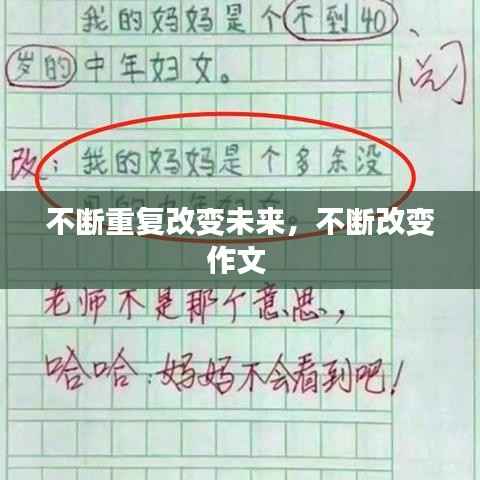 我的妈妈是个不到40
岁的中年妇女。
阅
改：我的妈妈是个多余没
不断重复改变未来，不断改变
作文
老师不是那个意思，
哈哈：妈妈不会看到吧！